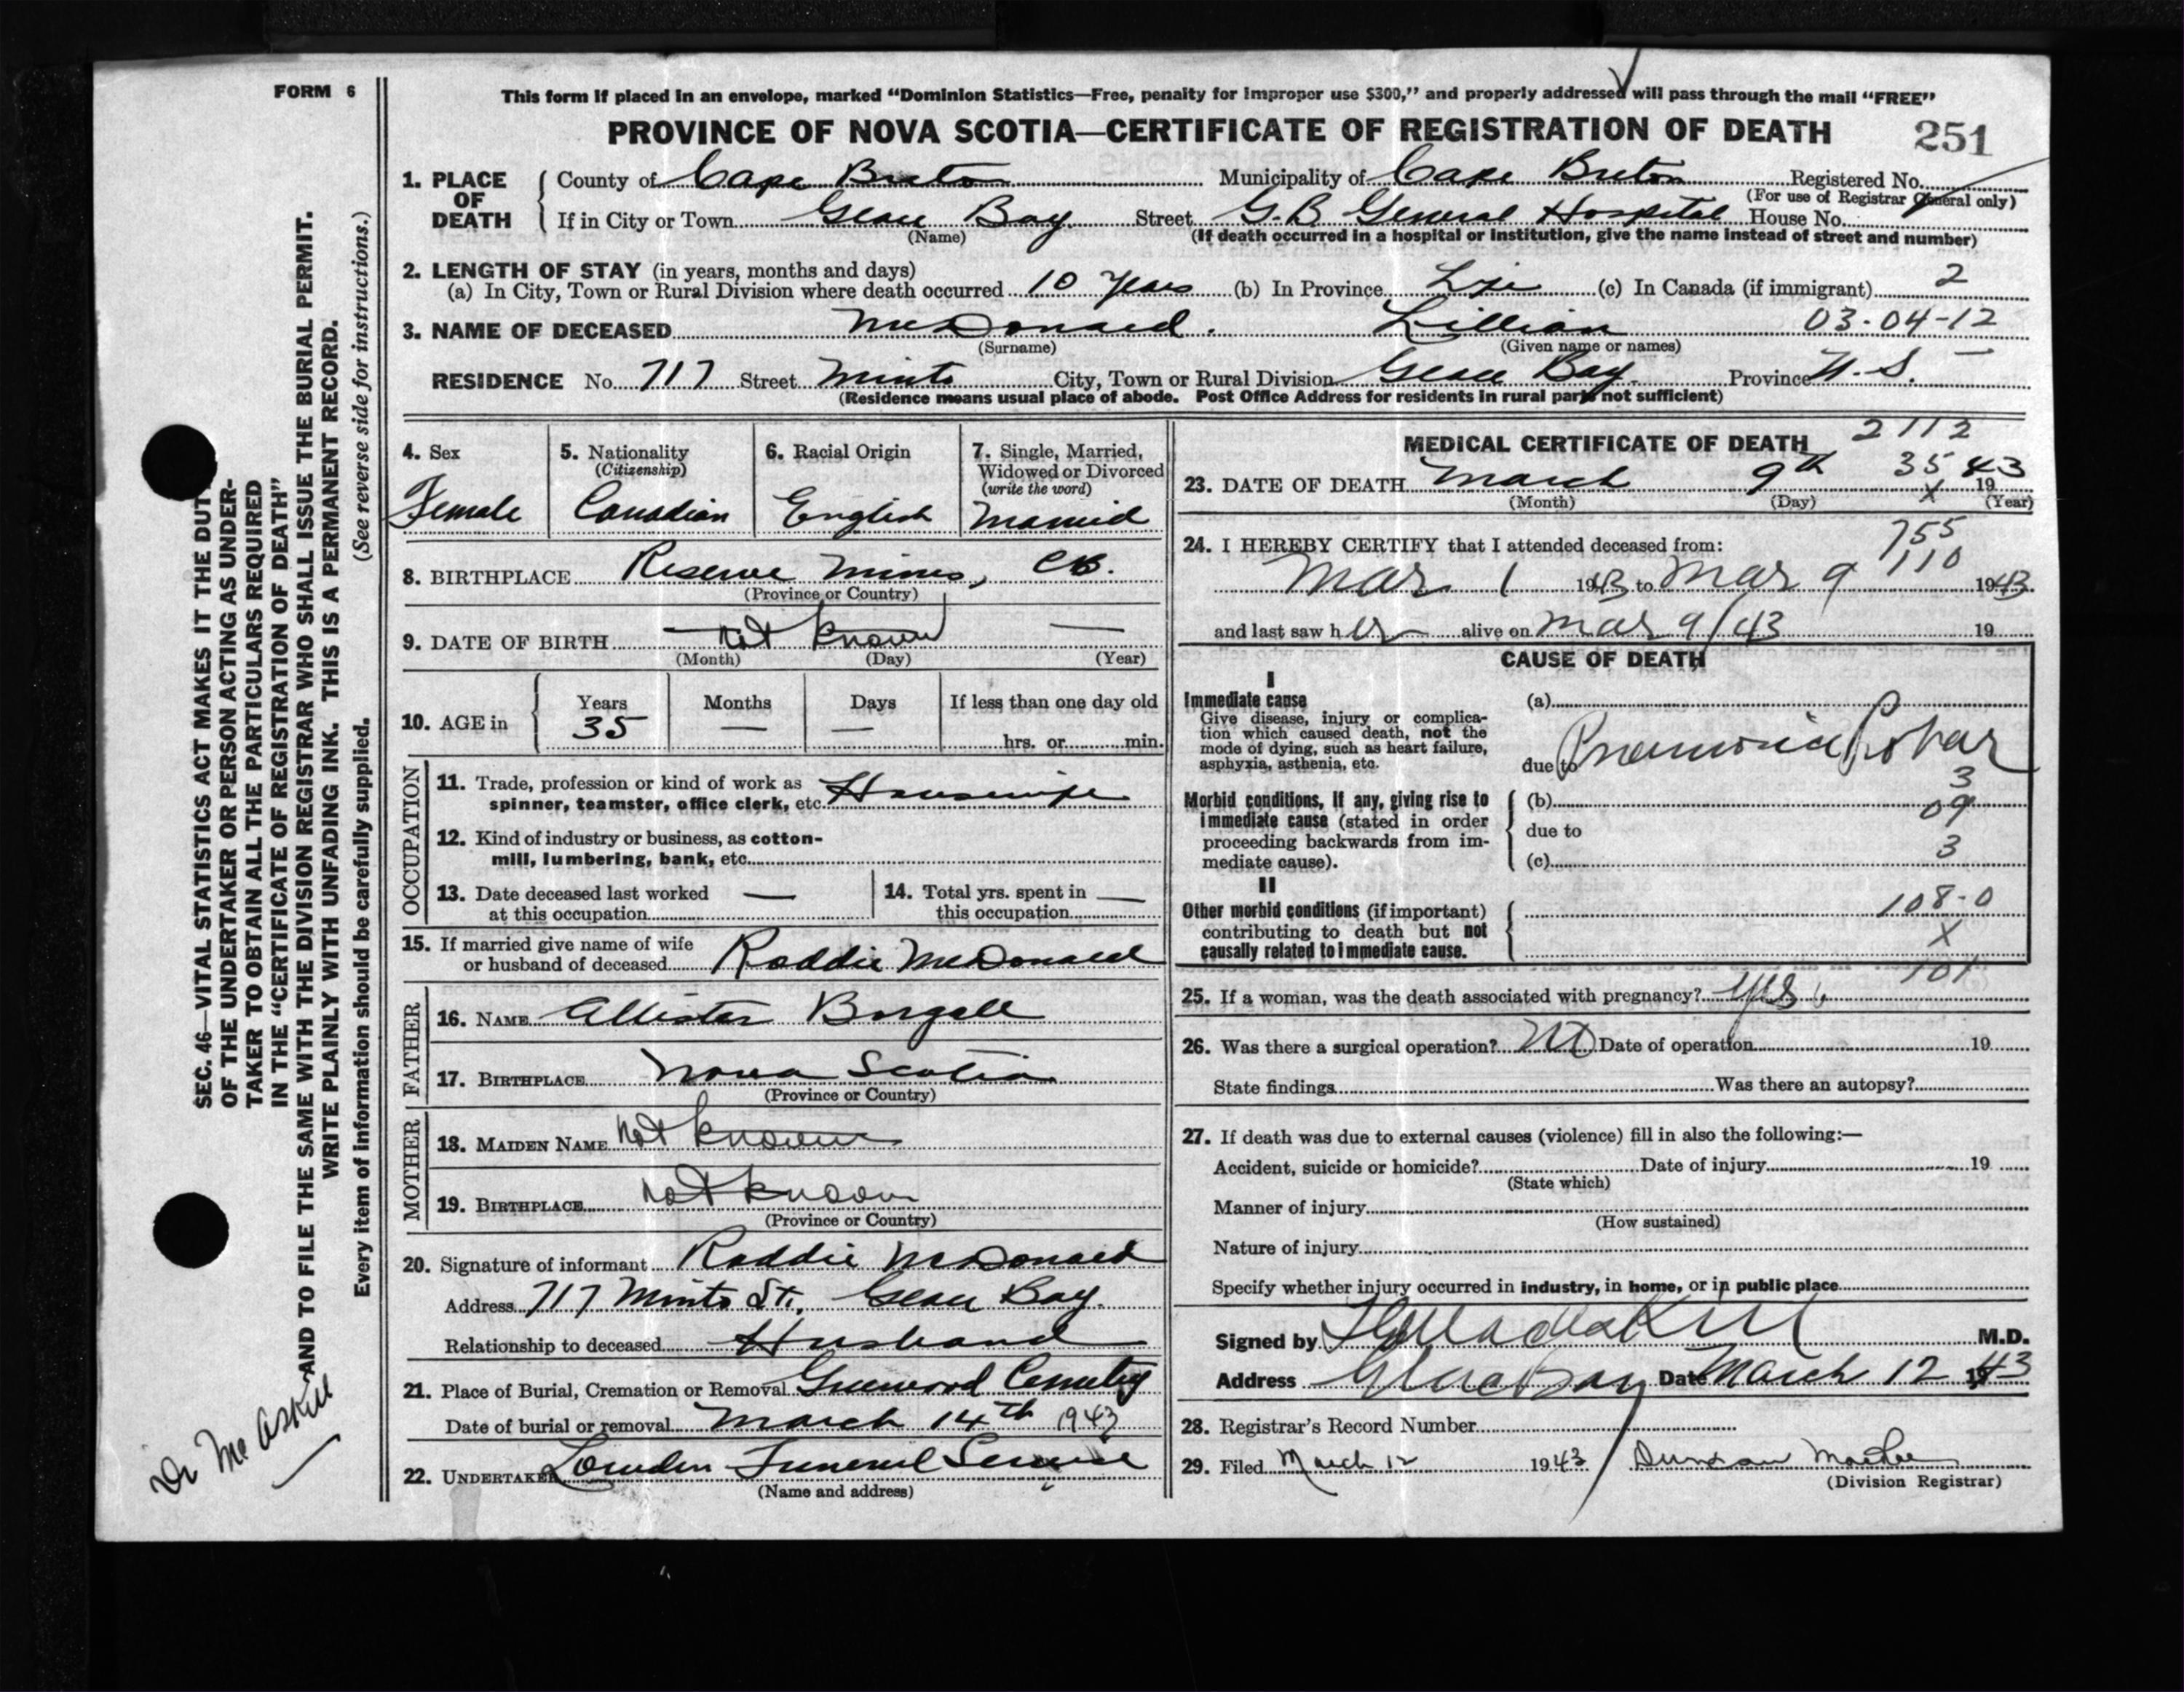 FORM 6
This form if placed in an envelope, marked “Dominion Statistics—Free, penalty for improper use $300,” and properly addressed will pass through the mail “FREE”
PROVINCE OF NOVA SCOTIA—CERTIFICATE OF REGISTRATION OF DEATH 251
1. PLACE OF DEATH
County of Cape Breton Municipality of Cape Breton Registered No.
(For use of Registrar General only)
If in City or Town Glace Bay. Street G.B General Hospital House No.
(Name) (If death occurred in a hospital or institution, give the name instead of street and number)
2. LENGTH OF STAY (in years, months and days)
(a) In City, Town or Rural Division where death occurred 10 years (b) In Province Life (c) In Canada (if immigrant) 2
3. NAME OF DECEASED McDonald. Lillian 03-04-12
(Surname) (Given name or names)
RESIDENCE No. 717 Street Minto City, Town or Rural Division Glace Bay. Province N.S.
(Residence means usual place of abode. Post Office Address for residents in rural parts not sufficient)
4. Sex
Female
5. Nationality
(Citizenship)
Canadian
6. Racial Origin
English
7. Single, Married,
Widowed or Divorced
(write the word)
Married
8. BIRTHPLACE Reserve Mines, CB.
(Province or Country)
9. DATE OF BIRTH — not known —
(Month) (Day) (Year)
10. AGE in
Years Months Days If less than one day old
35 — —
hrs. or min.
OCCUPATION
11. Trade, profession or kind of work as
spinner, teamster, office clerk, etc. Housewife
12. Kind of industry or business, as cotton-
mill, lumbering, bank, etc.
13. Date deceased last worked —
at this occupation
14. Total yrs. spent in —
this occupation
15. If married give name of wife
or husband of deceased Roddie McDonald
FATHER
16. NAME Allister
17. BIRTHPLACE Nova Scotia
(Province or Country)
MOTHER
18. MAIDEN NAME Not known
19. BIRTHPLACE not known
(Province or Country)
20. Signature of informant Roddie McDonald
Address 717 Minto St., Glace Bay.
Relationship to deceased Husband
21. Place of Burial, Cremation or Removal Greenwood Cemetery
Date of burial or removal March 14th 1943
22. UNDERTAKER Lowden Funeral Service
(Name and address)
MEDICAL CERTIFICATE OF DEATH 2112
35
23. DATE OF DEATH March 9th X 1943
(Month) (Day) (Year)
755
24. I HEREBY CERTIFY that I attended deceased from: 110
Mar 1 1943 to Mar 9 1943
and last saw her alive on Mar 9/43 19
CAUSE OF DEATH
I
Immediate cause
Give disease, injury or complica-
tion which caused death, not the
mode of dying, such as heart failure,
asphyxia, asthenia, etc.
(a)
due to Pneumonia Lobar
3
Morbid conditions, if any, giving rise to
immediate cause (stated in order
proceeding backwards from im-
mediate cause).
(b) 09
due to
(c) 3
II
Other morbid conditions (if important)
contributing to death but not
causally related to immediate cause.
108-0
X
101
25. If a woman, was the death associated with pregnancy? Yes.
26. Was there a surgical operation? No Date of operation 19
State findings Was there an autopsy?
27. If death was due to external causes (violence) fill in also the following:—
Accident, suicide or homicide? Date of injury 19
(State which)
Manner of injury
(How sustained)
Nature of injury
Specify whether injury occurred in industry, in home, or in public place
Signed by M.D.
Address Glace Bay Date March 12 1943
28. Registrar’s Record Number
29. Filed March 12 1943 Duncan
(Division Registrar)
SEC. 46—VITAL STATISTICS ACT MAKES IT THE DUTY
OF THE UNDERTAKER OR PERSON ACTING AS UNDER-
TAKER TO OBTAIN ALL THE PARTICULARS REQUIRED
IN THE “CERTIFICATE OF REGISTRATION OF DEATH”
AND TO FILE THE SAME WITH THE DIVISION REGISTRAR WHO SHALL ISSUE THE BURIAL PERMIT.
WRITE PLAINLY WITH UNFADING INK. THIS IS A PERMANENT RECORD.
Every item of information should be carefully supplied. (See reverse side for instructions.)
Dr McAskill